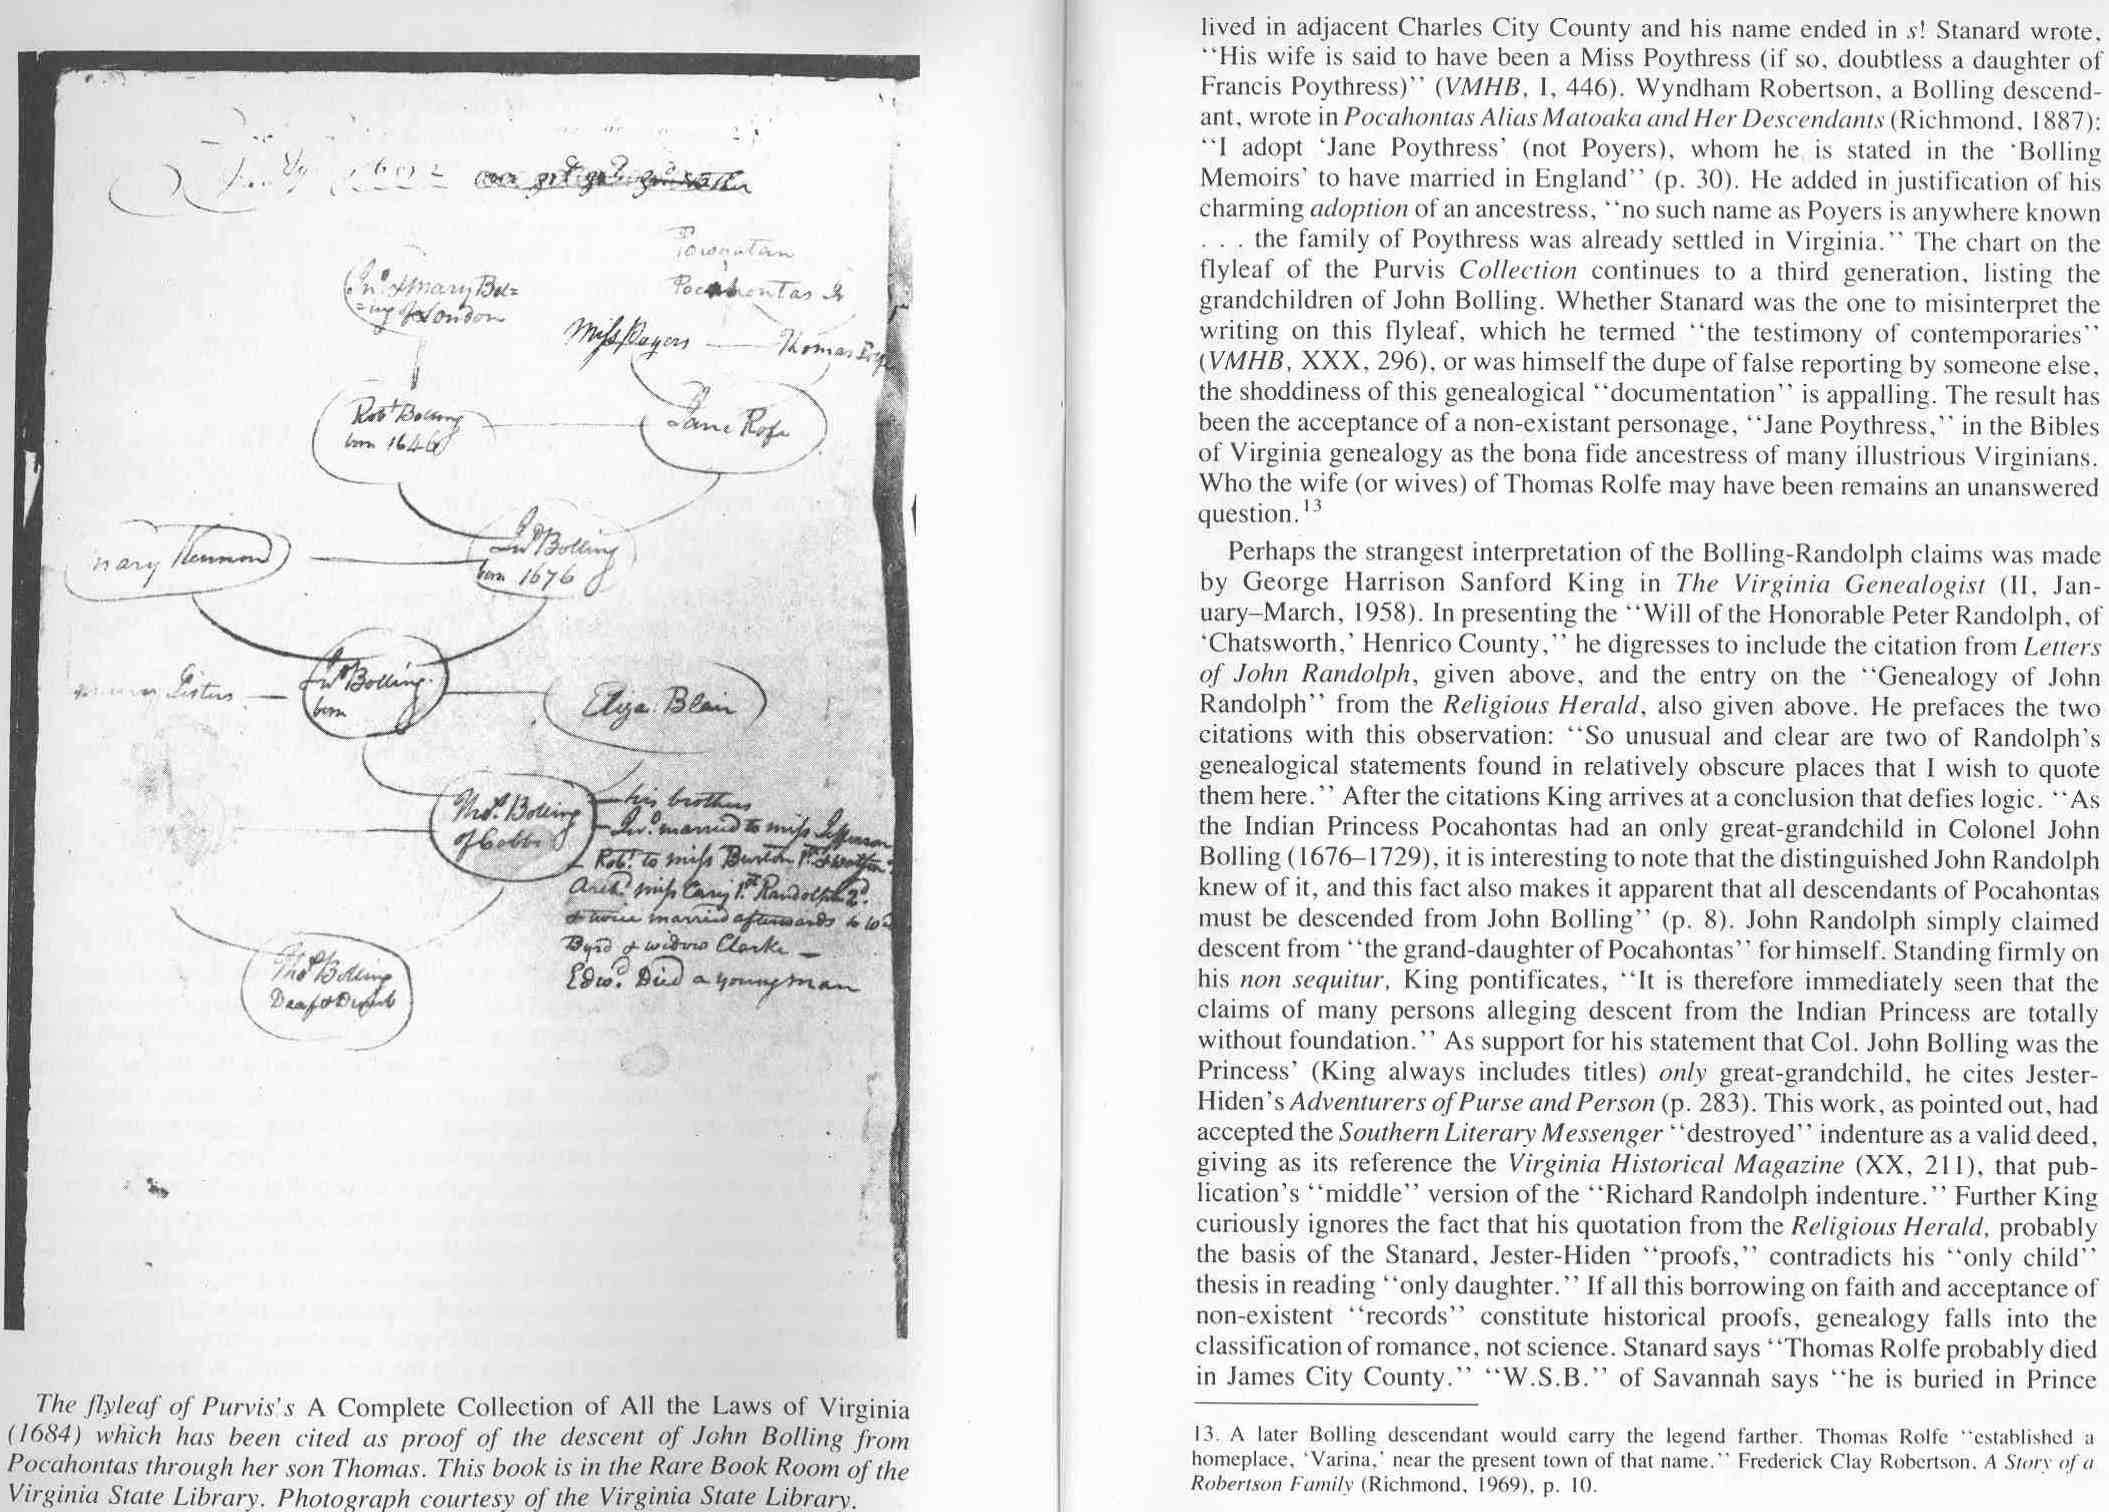 Powhatan
Jnº & Mary Bol=
=ing of London
Pocahontas
Miss Payers
Thomas
Robt Bolling
born 1646
Jane Rolfe
Mary Kennon
Jnº Bolling
born 1676
Sisters
Jnº Bolling
born
Eliza Blair
Thoˢ. Bolling
of Cobbs
his brothers
Jnº. married to miss Jefferson
Robt. to miss Burton 1st &
Archd. miss Cary 1st. Randolph 2d.
& twice married afterwards to
Byrd & widow Clarke —
Edwd. Died a young man
Thoˢ Bolling
Deaf & Dumb
The flyleaf of Purvis's A Complete Collection of All the Laws of Virginia
(1684) which has been cited as proof of the descent of John Bolling from
Pocahontas through her son Thomas. This book is in the Rare Book Room of the
Virginia State Library. Photograph courtesy of the Virginia State Library.
lived in adjacent Charles City County and his name ended in s! Stanard wrote,
“His wife is said to have been a Miss Poythress (if so, doubtless a daughter of
Francis Poythress)” (VMHB, I, 446). Wyndham Robertson, a Bolling descend-
ant, wrote in Pocahontas Alias Matoaka and Her Descendants (Richmond, 1887):
“I adopt ‘Jane Poythress’ (not Poyers), whom he is stated in the ‘Bolling
Memoirs’ to have married in England” (p. 30). He added in justification of his
charming adoption of an ancestress, “no such name as Poyers is anywhere known
. . . the family of Poythress was already settled in Virginia.” The chart on the
flyleaf of the Purvis Collection continues to a third generation, listing the
grandchildren of John Bolling. Whether Stanard was the one to misinterpret the
writing on this flyleaf, which he termed “the testimony of contemporaries”
(VMHB, XXX, 296), or was himself the dupe of false reporting by someone else,
the shoddiness of this genealogical “documentation” is appalling. The result has
been the acceptance of a non-existant personage, “Jane Poythress,” in the Bibles
of Virginia genealogy as the bona fide ancestress of many illustrious Virginians.
Who the wife (or wives) of Thomas Rolfe may have been remains an unanswered
question.13
Perhaps the strangest interpretation of the Bolling-Randolph claims was made
by George Harrison Sanford King in The Virginia Genealogist (II, Jan-
uary–March, 1958). In presenting the “Will of the Honorable Peter Randolph, of
‘Chatsworth,’ Henrico County,” he digresses to include the citation from Letters
of John Randolph, given above, and the entry on the “Genealogy of John
Randolph” from the Religious Herald, also given above. He prefaces the two
citations with this observation: “So unusual and clear are two of Randolph’s
genealogical statements found in relatively obscure places that I wish to quote
them here.” After the citations King arrives at a conclusion that defies logic. “As
the Indian Princess Pocahontas had an only great-grandchild in Colonel John
Bolling (1676–1729), it is interesting to note that the distinguished John Randolph
knew of it, and this fact also makes it apparent that all descendants of Pocahontas
must be descended from John Bolling” (p. 8). John Randolph simply claimed
descent from “the grand-daughter of Pocahontas” for himself. Standing firmly on
his non sequitur, King pontificates, “It is therefore immediately seen that the
claims of many persons alleging descent from the Indian Princess are totally
without foundation.” As support for his statement that Col. John Bolling was the
Princess’ (King always includes titles) only great-grandchild, he cites Jester-
Hiden’s Adventurers of Purse and Person (p. 283). This work, as pointed out, had
accepted the Southern Literary Messenger “destroyed” indenture as a valid deed,
giving as its reference the Virginia Historical Magazine (XX, 211), that pub-
lication’s “middle” version of the “Richard Randolph indenture.” Further King
curiously ignores the fact that his quotation from the Religious Herald, probably
the basis of the Stanard, Jester-Hiden “proofs,” contradicts his “only child”
thesis in reading “only daughter.” If all this borrowing on faith and acceptance of
non-existent “records” constitute historical proofs, genealogy falls into the
classification of romance, not science. Stanard says “Thomas Rolfe probably died
in James City County.” “W.S.B.” of Savannah says “he is buried in Prince
13. A later Bolling descendant would carry the legend farther. Thomas Rolfe “established a
homeplace, ‘Varina,’ near the present town of that name.” Frederick Clay Robertson, A Story of a
Robertson Family (Richmond, 1969), p. 10.